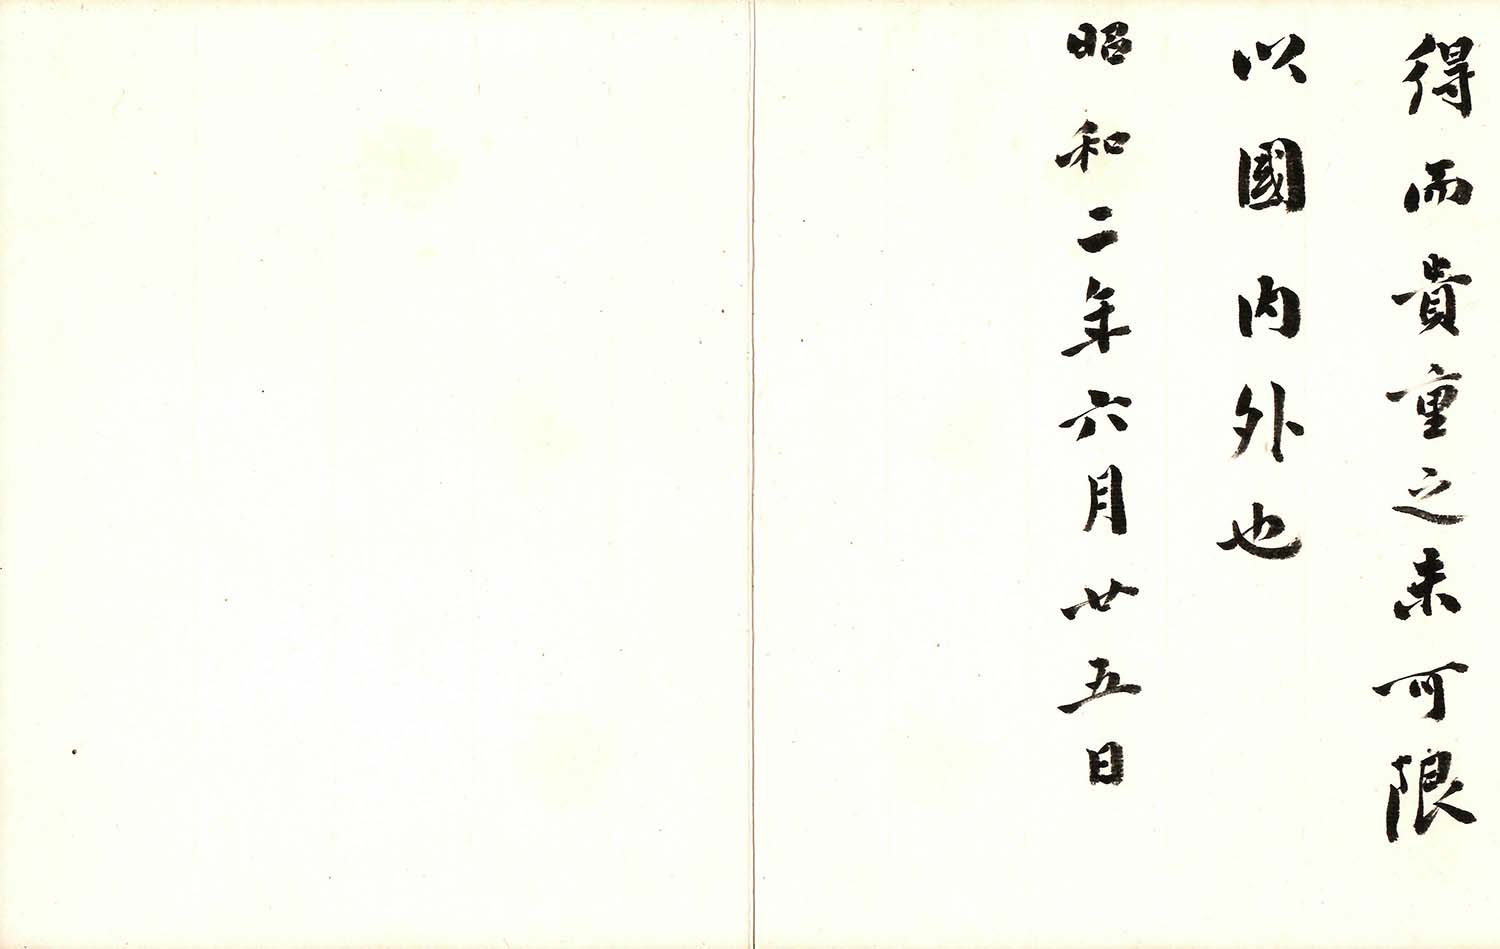 得而貴重之未可限
以國内外也
昭和二年六月廿五日